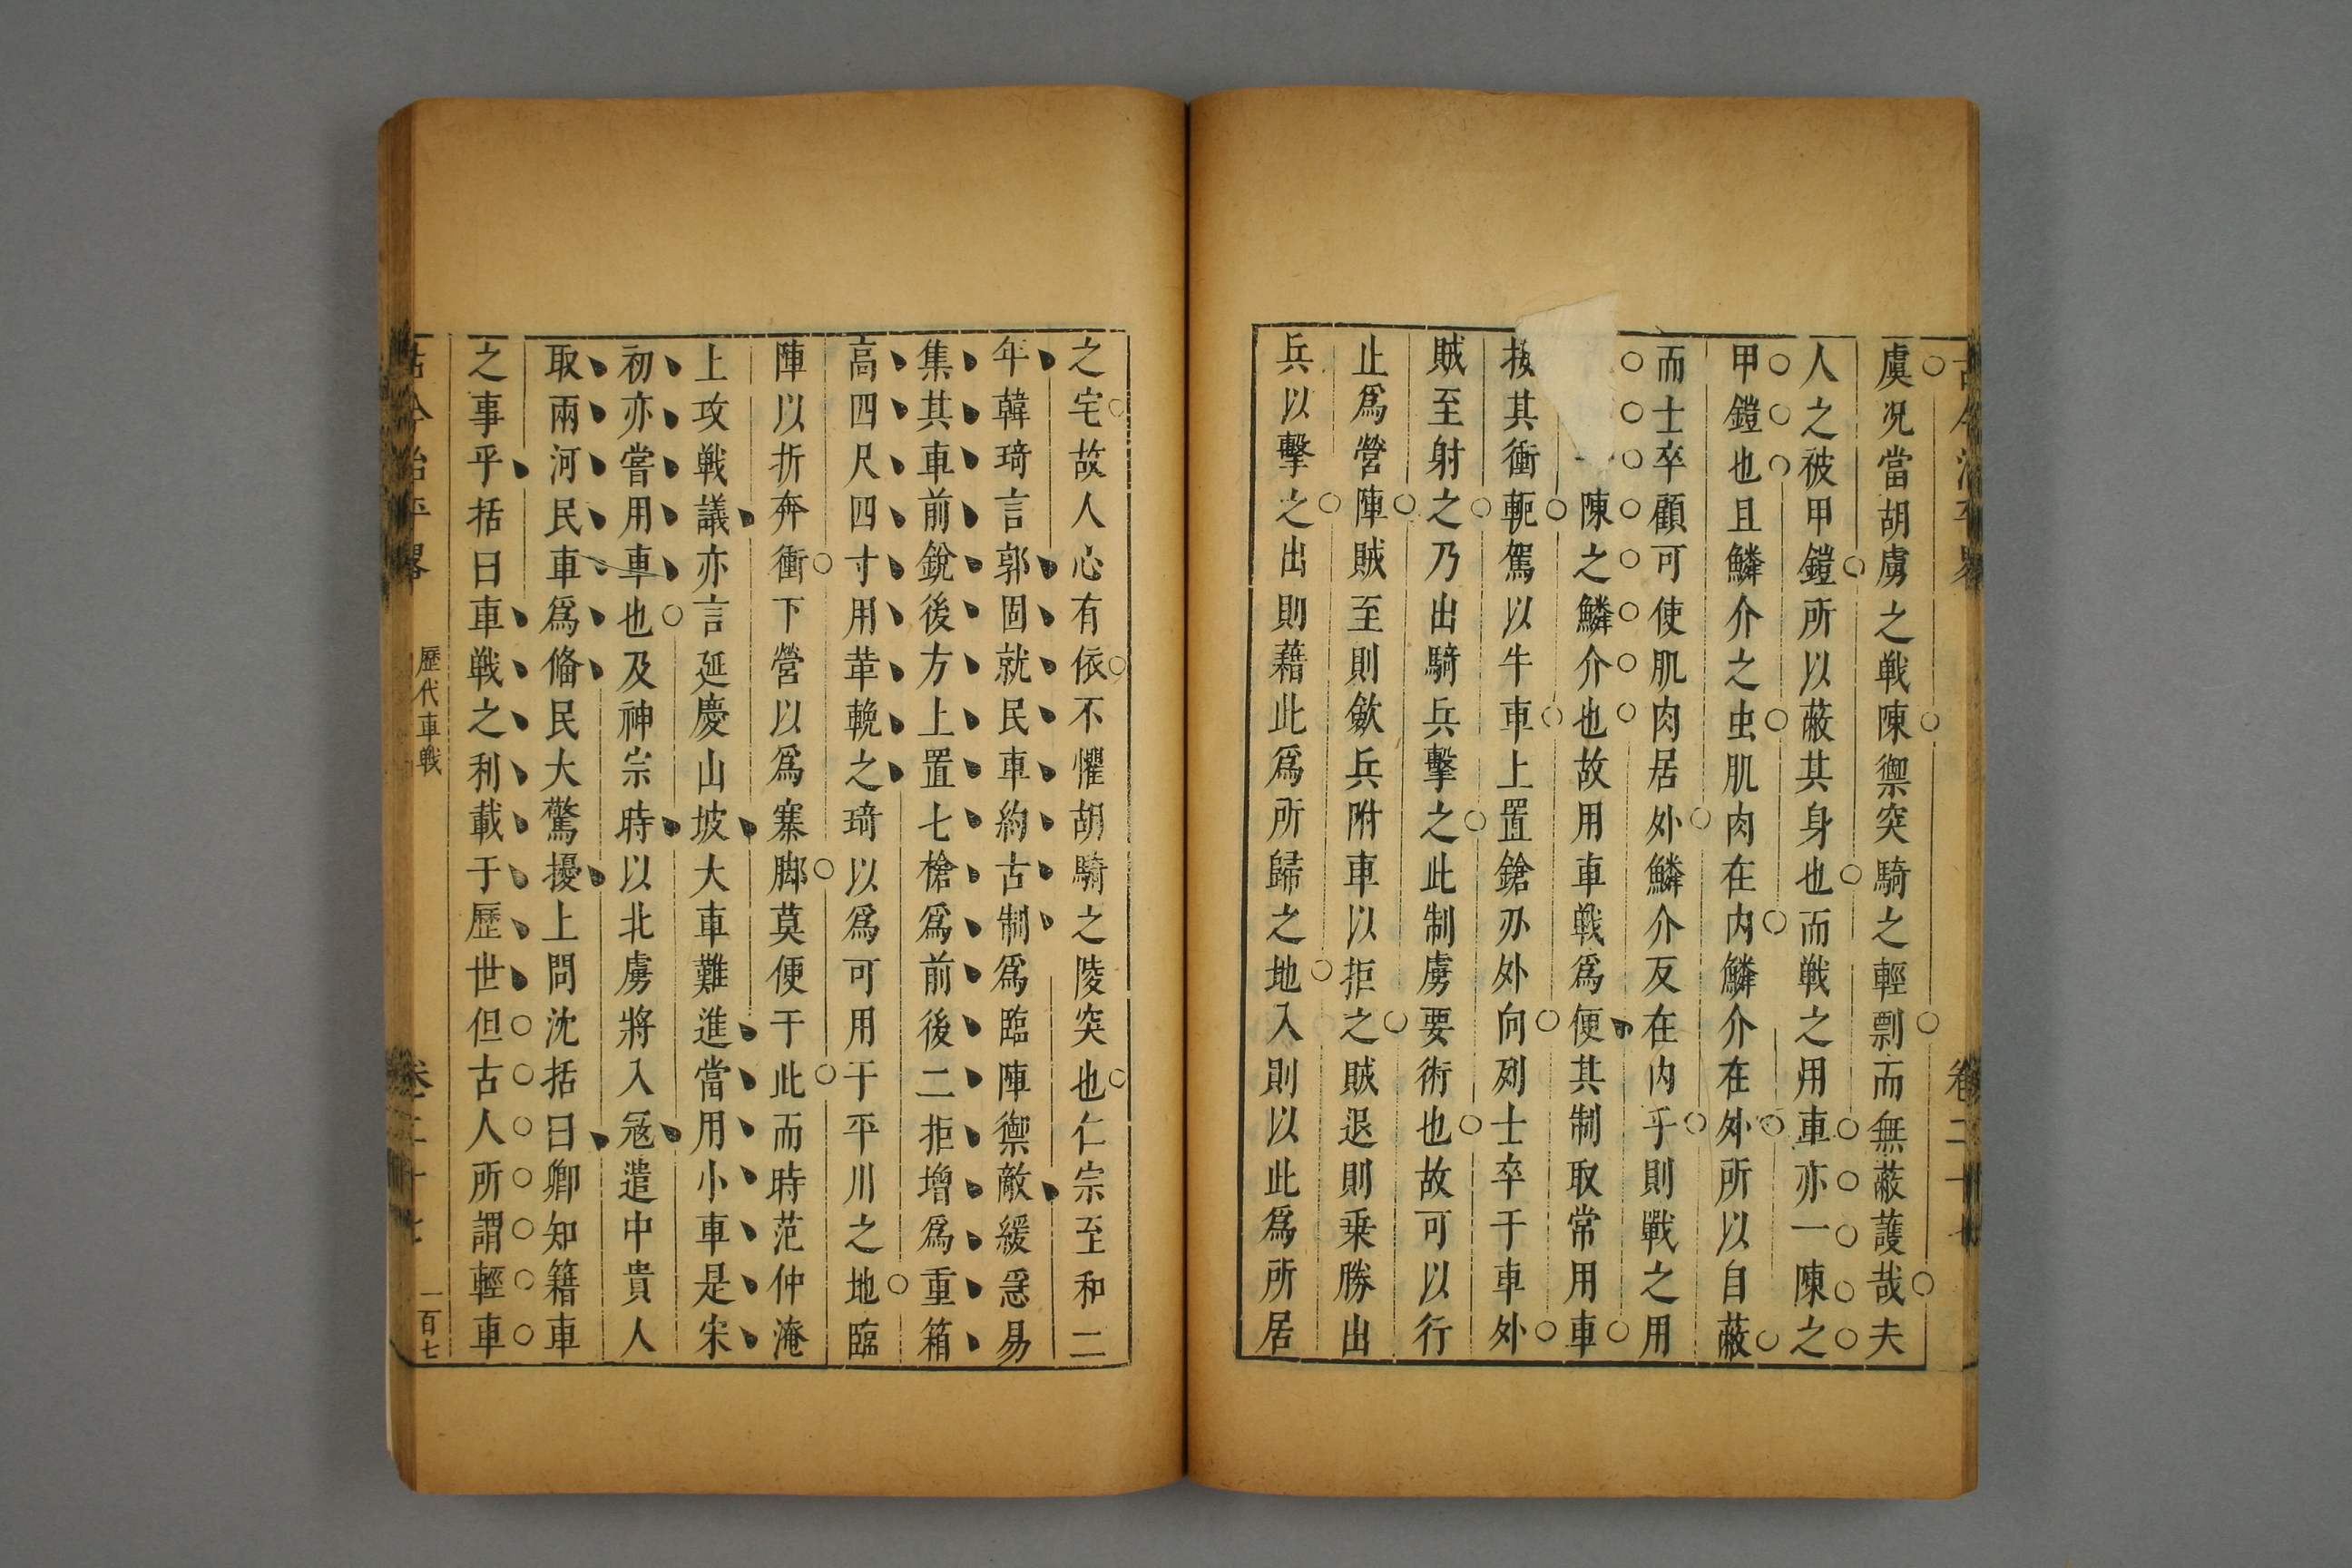 虞况當胡虜之戦陳禦突騎之輕剽而無蔽護哉夫
人之被甲鎧所以蔽其身也而戦之用車亦一陳之
甲鎧也且鱗介之虫肌肉在内鱗介在外所以自蔽
而士卒顧可使肌肉居外鱗介反在内乎則戰之用
陳之鱗介也故用車戰爲便其制取常用車
其衝軛駕以牛車上置鎗刅外向列士卒于車外
賊至射之乃出騎兵擊之此制虜要術也故可以行
止爲營陣賊至則斂兵附車以拒之賊退則乗勝出
兵以擊之出則藉此爲所歸之地入則以此爲所居
之宅故人心有依不懼胡騎之陵突也仁宗至和二
年韓琦言郭固就民車約古制爲臨陣禦敵緩急易
集其車前銳後方上置七槍爲前後二拒增爲重箱
高四尺四寸用革輓之琦以爲可用于平川之地臨
陣以折奔衝下營以爲寨脚莫便于此而時范仲淹
上攻戦議亦言延慶山坡大車難進當用小車是宋
初亦嘗用車也及神宗時以北虜將入冦遣中貴人
取兩河民車爲偹民大驚擾上問沈括曰卿知籍車
之事乎括曰車戦之利載于歷世但古人所謂輕車
歷代車戦
一百七